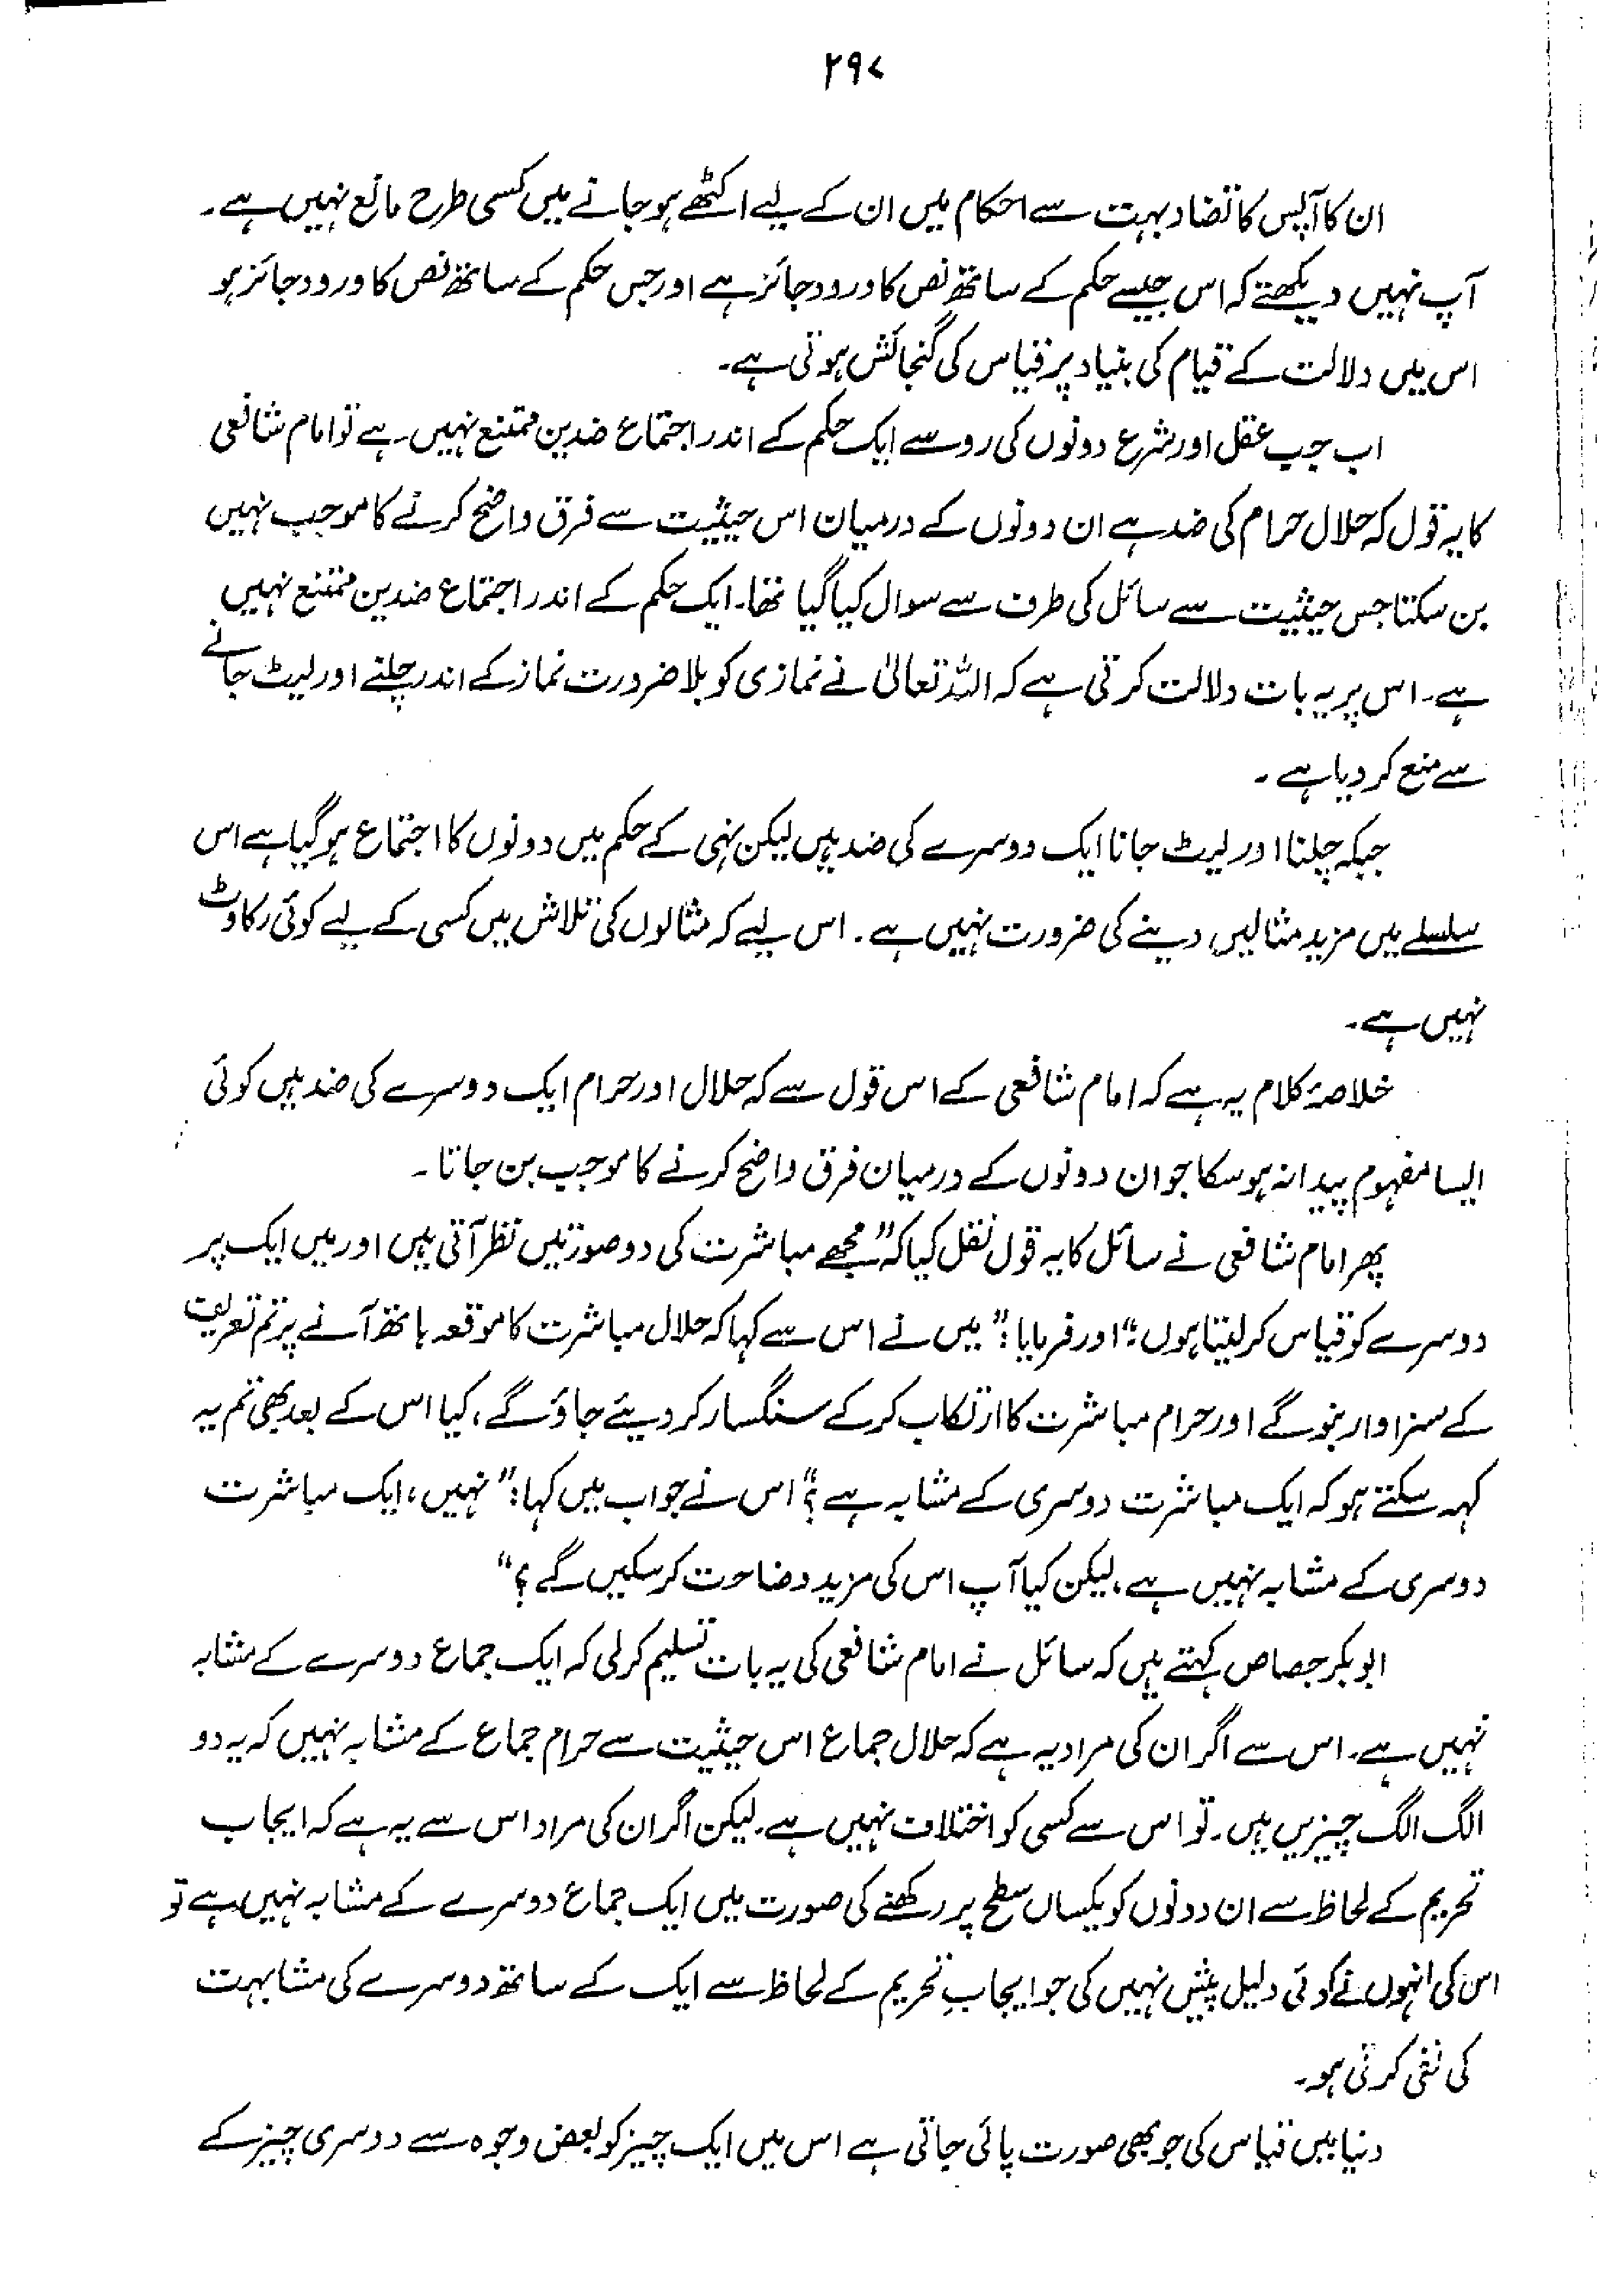 ۲۹۷
ان کا آپس کا تضاد بہت سے احکام میں ان کے لیے اکٹھے ہو جانے میں کسی طرح مانع نہیں ہے۔
آپ نہیں دیکھتے کہ اس جیسے حکم کے ساتھ نص کا ورود جائز ہے اور جس حکم کے ساتھ نص کا ورود جائز ہو
اس میں دلالت کے قیام کی بنیاد پر قیاس کی گنجائش ہوتی ہے۔
اب جب عقل اور شرع دونوں کی رو سے ایک حکم کے اندر اجتماع ضدین ممتنع نہیں ہے تو امام شافعی
کا یہ قول کہ حلال حرام کی ضد ہے ان دونوں کے درمیان اس حیثیت سے فرق واضح کرنے کا موجب نہیں
بن سکتا جس حیثیت سے سائل کی طرف سے سوال کیا گیا تھا۔ ایک حکم کے اندر اجتماع ضدین ممتنع نہیں
ہے۔ اس پر یہ بات دلالت کرتی ہے کہ اللہ تعالیٰ نے نمازی کو بلا ضرورت نماز کے اندر چلنے اور لیٹ جانے
سے منع کر دیا ہے۔
جبکہ چلنا اور لیٹ جانا ایک دوسرے کی ضد ہیں لیکن نہی کے حکم میں دونوں کا اجتماع ہو گیا ہے اس
سلسلے میں مزید مثالیں دینے کی ضرورت نہیں ہے۔ اس لیے کہ مثالوں کی تلاش میں کسی کے لیے کوئی رکاوٹ
نہیں ہے۔
خلاصۂ کلام یہ ہے کہ امام شافعی کے اس قول سے کہ حلال اور حرام ایک دوسرے کی ضد ہیں کوئی
ایسا مفہوم پیدا نہ ہو سکا جو ان دونوں کے درمیان فرق واضح کرنے کا موجب بن جاتا۔
پھر امام شافعی نے سائل کا یہ قول نقل کیا کہ "مجھے مباشرت کی دو صورتیں نظر آتی ہیں اور میں ایک پر
دوسرے کو قیاس کر لیتا ہوں؛" اور فرمایا: "میں نے اس سے کہا کہ حلال مباشرت کا موقعہ ہاتھ آنے پر تم تعریف
کے سزاوار بنو گے اور حرام مباشرت کا ارتکاب کر کے سنگسار کر دیئے جاؤ گے، کیا اس کے بعد بھی تم یہ
کہہ سکتے ہو کہ ایک مباشرت دوسری کے مشابہ ہے؟" اس نے جواب میں کہا: "نہیں، ایک مباشرت
دوسری کے مشابہ نہیں ہے، لیکن کیا آپ اس کی مزید وضاحت کر سکیں گے؟"
ابو بکر جصاص کہتے ہیں کہ سائل نے امام شافعی کی یہ بات تسلیم کر لی کہ ایک جماع دوسرے کے مشابہ
نہیں ہے۔ اس سے اگر ان کی مراد یہ ہے کہ حلال جماع اس حیثیت سے حرام جماع کے مشابہ نہیں کہ یہ دو
الگ الگ چیزیں ہیں۔ تو اس سے کسی کو اختلاف نہیں ہے۔ لیکن اگر ان کی مراد اس سے یہ ہے کہ ایجاب
تحریم کے لحاظ سے ان دونوں کو یکساں سطح پر رکھنے کی صورت میں ایک جماع دوسرے کے مشابہ نہیں ہے تو
اس کی انہوں نے کوئی دلیل پیش نہیں کی جو ایجابِ تحریم کے لحاظ سے ایک کے ساتھ دوسرے کی مشابہت
کی نفی کرتی ہو۔
دنیا میں قیاس کی جو بھی صورت پائی جاتی ہے اس میں ایک چیز کو بعض وجوہ سے دوسری چیز کے